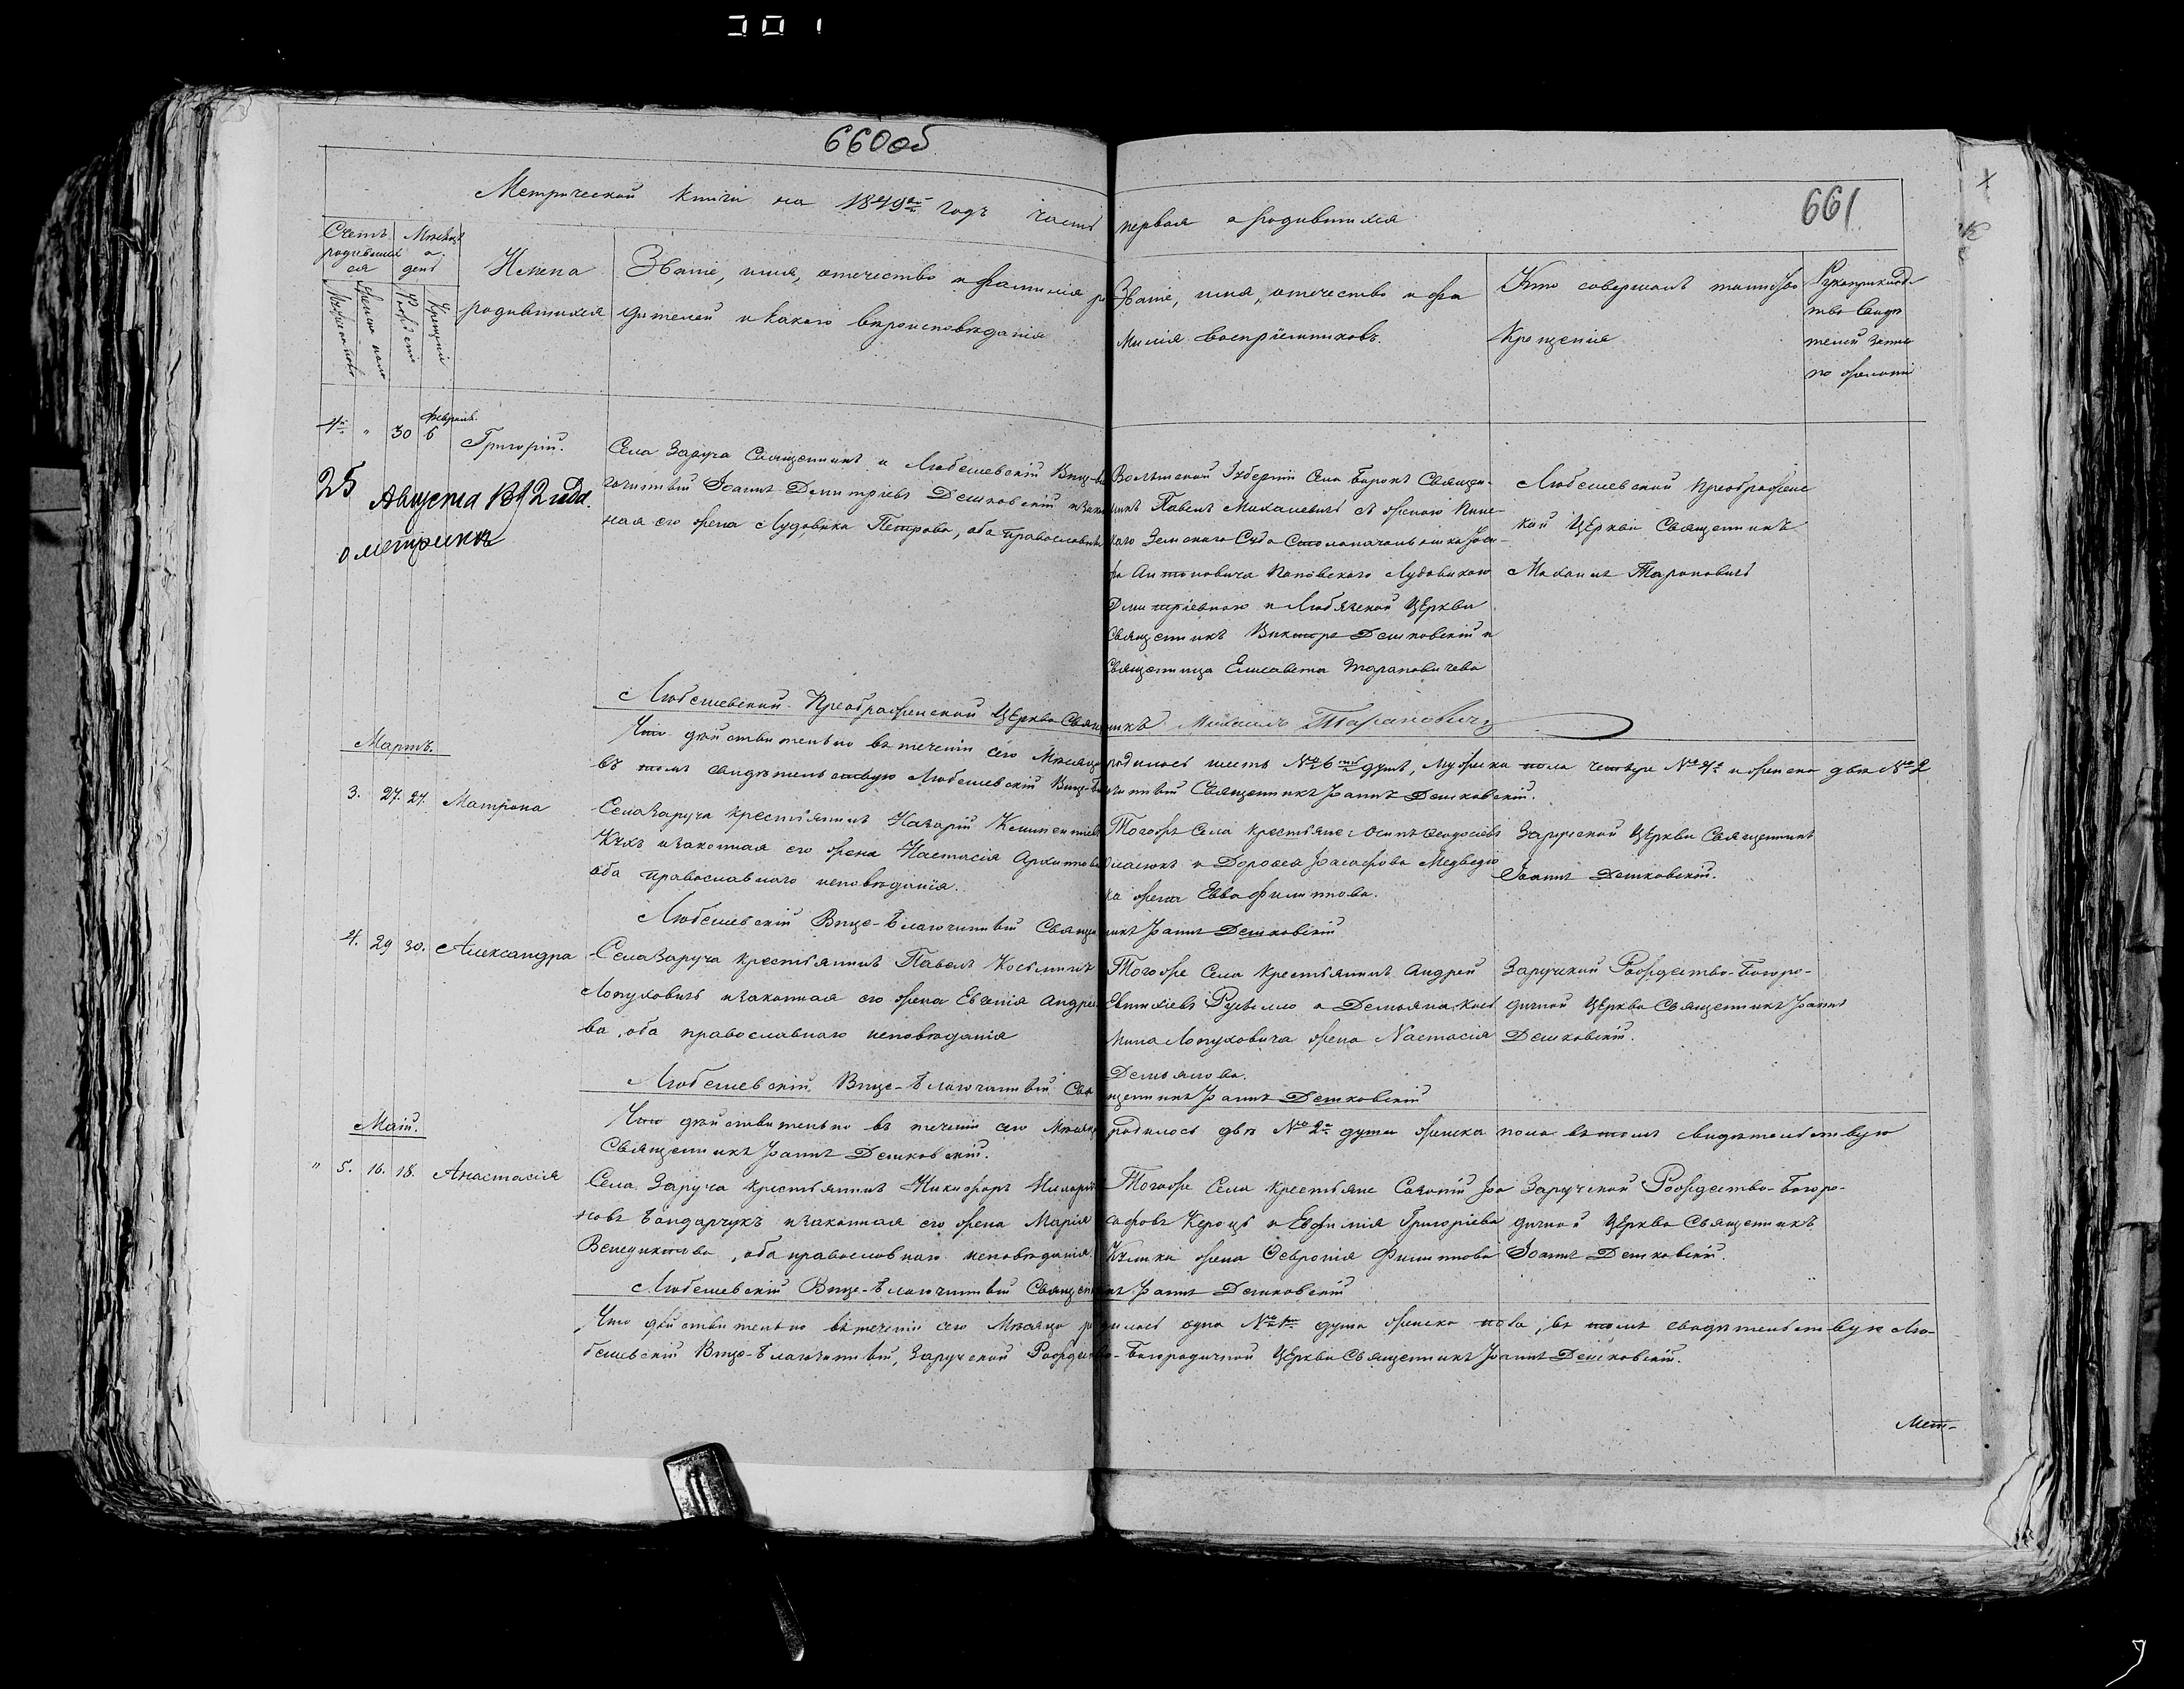 660об
661
Метрической Книги на 1849й годъ часть первая о родившихся
Счетъ родившихся
Мѣсяцъ и день
Мужеска полу
Женска полу
Рожденія
Крещенія
Имена
родившихся
Званіе, имя, отечество и фамилія ро
дителей и какого вѣроисповѣданія
Званіе, имя, отечество и фа
милія воспріемниковъ.
Кто совершалъ таинство
Крещенія
Рукоприклад
тво Свидѣ
телей записи
по желанію
4й " 30 Февраля. 6 Григорій.
25 Августа
о метрикѣ
Села Заруча Священникъ и Любешевскій Вице-Бла
гочинный Іоаннъ Димитріевъ Дешковскій и закон
ная его жена Лудовика Петрова, оба православные
Волынской Губерніи Села Священ-
никъ Павелъ Михалевичъ съ женою Пинс
каго Земскаго Суда Столоначальника Іоси-
фа Антоновича Лудовикою
Дмитріевною и Церкви
Священникъ Викторъ Дешковскій и
Священница Елисавета Тарановичева
Любешевской Преображенс
кой Церкви Священникъ
Михаилъ Тарановичъ
Любешевской Преображенской Церкви Священникъ Михаилъ Тарановичъ
Что дѣйствительно въ теченіи сего Мѣсяца родилось шесть № 6 душъ, мужеска пола четыре № 4 и женска двѣ № 2
въ томъ свидѣтельствую Любешевскій Вице-Благочинный Священникъ Іоаннъ Дешковскій.
Мартъ.
3. 27. 27. Матрона
Села Заруча крестьянинъ Назарій
и законная его жена Настасія
оба православнаго исповѣданія.
Тогожъ Села крестьяне: Осипъ Ѳеодосіевъ
и Доровея Медведю
ка жена Евва Филиппова.
Заручской Церкви Священникъ
Іоаннъ Дешковскій.
Любешевскій Вице-Благочинный Священникъ Іоаннъ Дешковскій
4. 29 30. Александра
Села Заруча крестьянинъ Павелъ Косьминъ
Лопуховичъ и законная его жена Евгенія Андрее
ва, оба православнаго исповѣданія
Тогоже Села Крестьянинъ Андрей
и Демьяна Кось
мина Лопуховича жена Настасія
Демьянова.
Заручской Рождество-Богоро-
дичной Церкви Священникъ Іоаннъ
Дешковскій.
Любешевскій Вице-Благочинный Священникъ Іоаннъ Дешковскій
Что дѣйствительно въ теченіи сего Мѣсяца родилось двѣ № 2 души женска пола въ томъ свидѣтельствую
Священникъ Іоаннъ Дешковскій.
Маій.
" 5. 16. 18. Анастасія
Села Заруча крестьянинъ Никифоръ
новъ Бондарчукъ и законная его жена Марія
Венедиктова, оба православнаго исповѣданія.
Тогоже Села Крестьяне Савватій Іоа
сафовъ и Евфимія Григоріева
жена Февронія Филиппова
Заручской Рождество-Богоро-
дичной Церкви Священникъ
Іоаннъ Дешковскій.
Любешевскій Вице-Благочинный Священникъ Іоаннъ Дешковскій
Что дѣйствительно въ теченіи сего Мѣсяца родилась одна № 1 душа женска пола, въ томъ свидѣтельствую Лю-
бешевскій Вице-Благочинный, Заручской Рождество-Богородичной Церкви Священникъ Іоаннъ Дешковскій.
Мет-